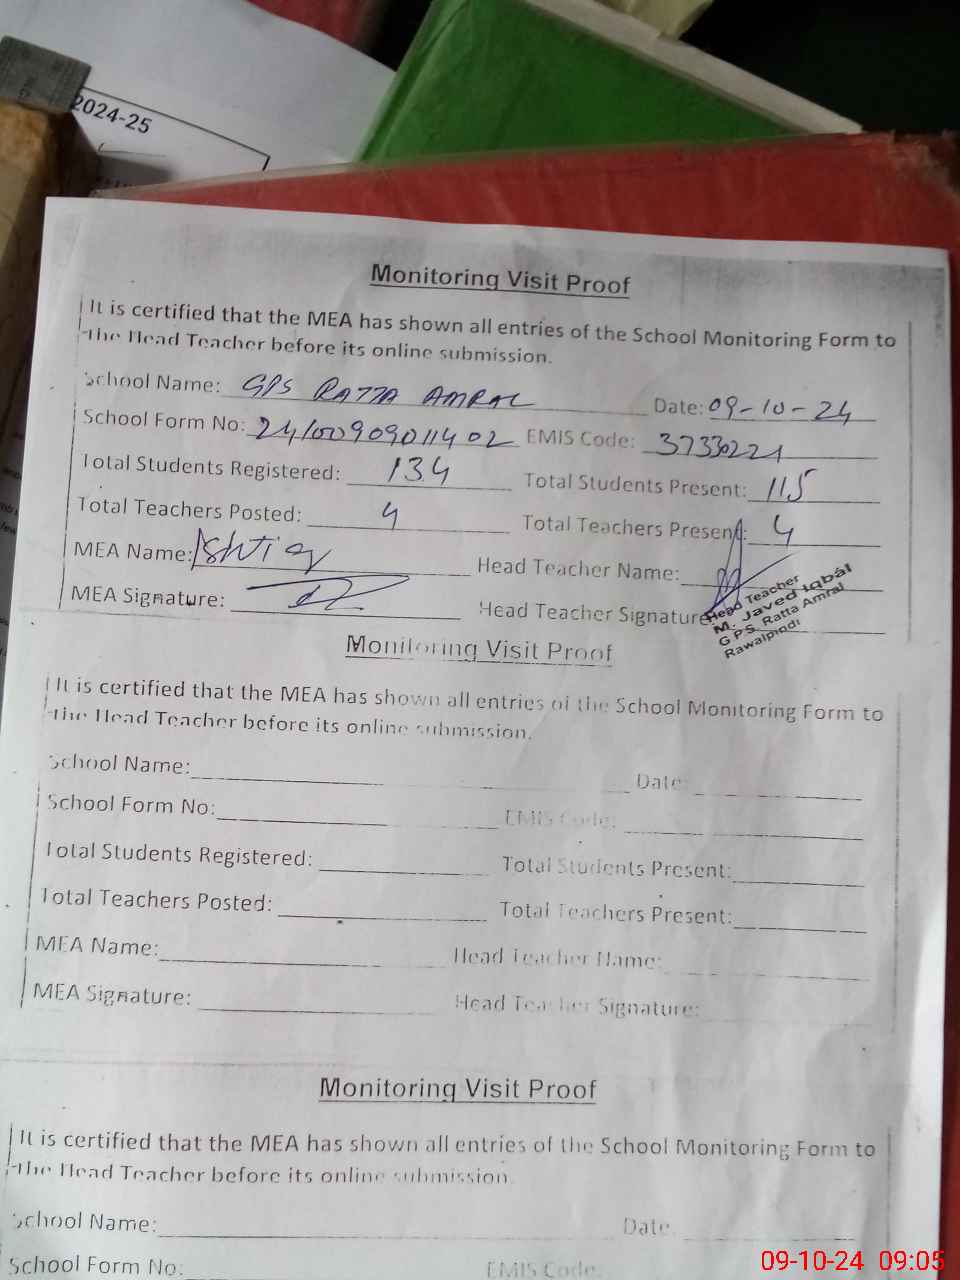 2024-25
Monitoring Visit Proof
It is certified that the MEA has shown all entries of the School Monitoring Form to
the Head Teacher before its online submission.
School Name: GPS RATTA AMRAL Date: 09-10-24
School Form No: 24100909011402 EMIS Code: 37330221
Total Students Registered: 134 Total Students Present: 115
Total Teachers Posted: 4 Total Teachers Present: 4
MEA Name: Ishtiaq Head Teacher Name:
MEA Signature: Head Teacher Signature
Head Teacher
M. Javed Iqbal
G.P.S. Ratta Amral
Rawalpindi
Monitoring Visit Proof
It is certified that the MEA has shown all entries of the School Monitoring Form to
the Head Teacher before its online submission.
School Name: Date:
School Form No: EMIS Code:
Total Students Registered: Total Students Present:
Total Teachers Posted: Total Teachers Present:
MEA Name: Head Teacher Name:
MEA Signature: Head Teacher Signature:
Monitoring Visit Proof
It is certified that the MEA has shown all entries of the School Monitoring Form to
the Head Teacher before its online submission.
School Name: Date:
School Form No: EMIS Code:
09-10-24 09:05